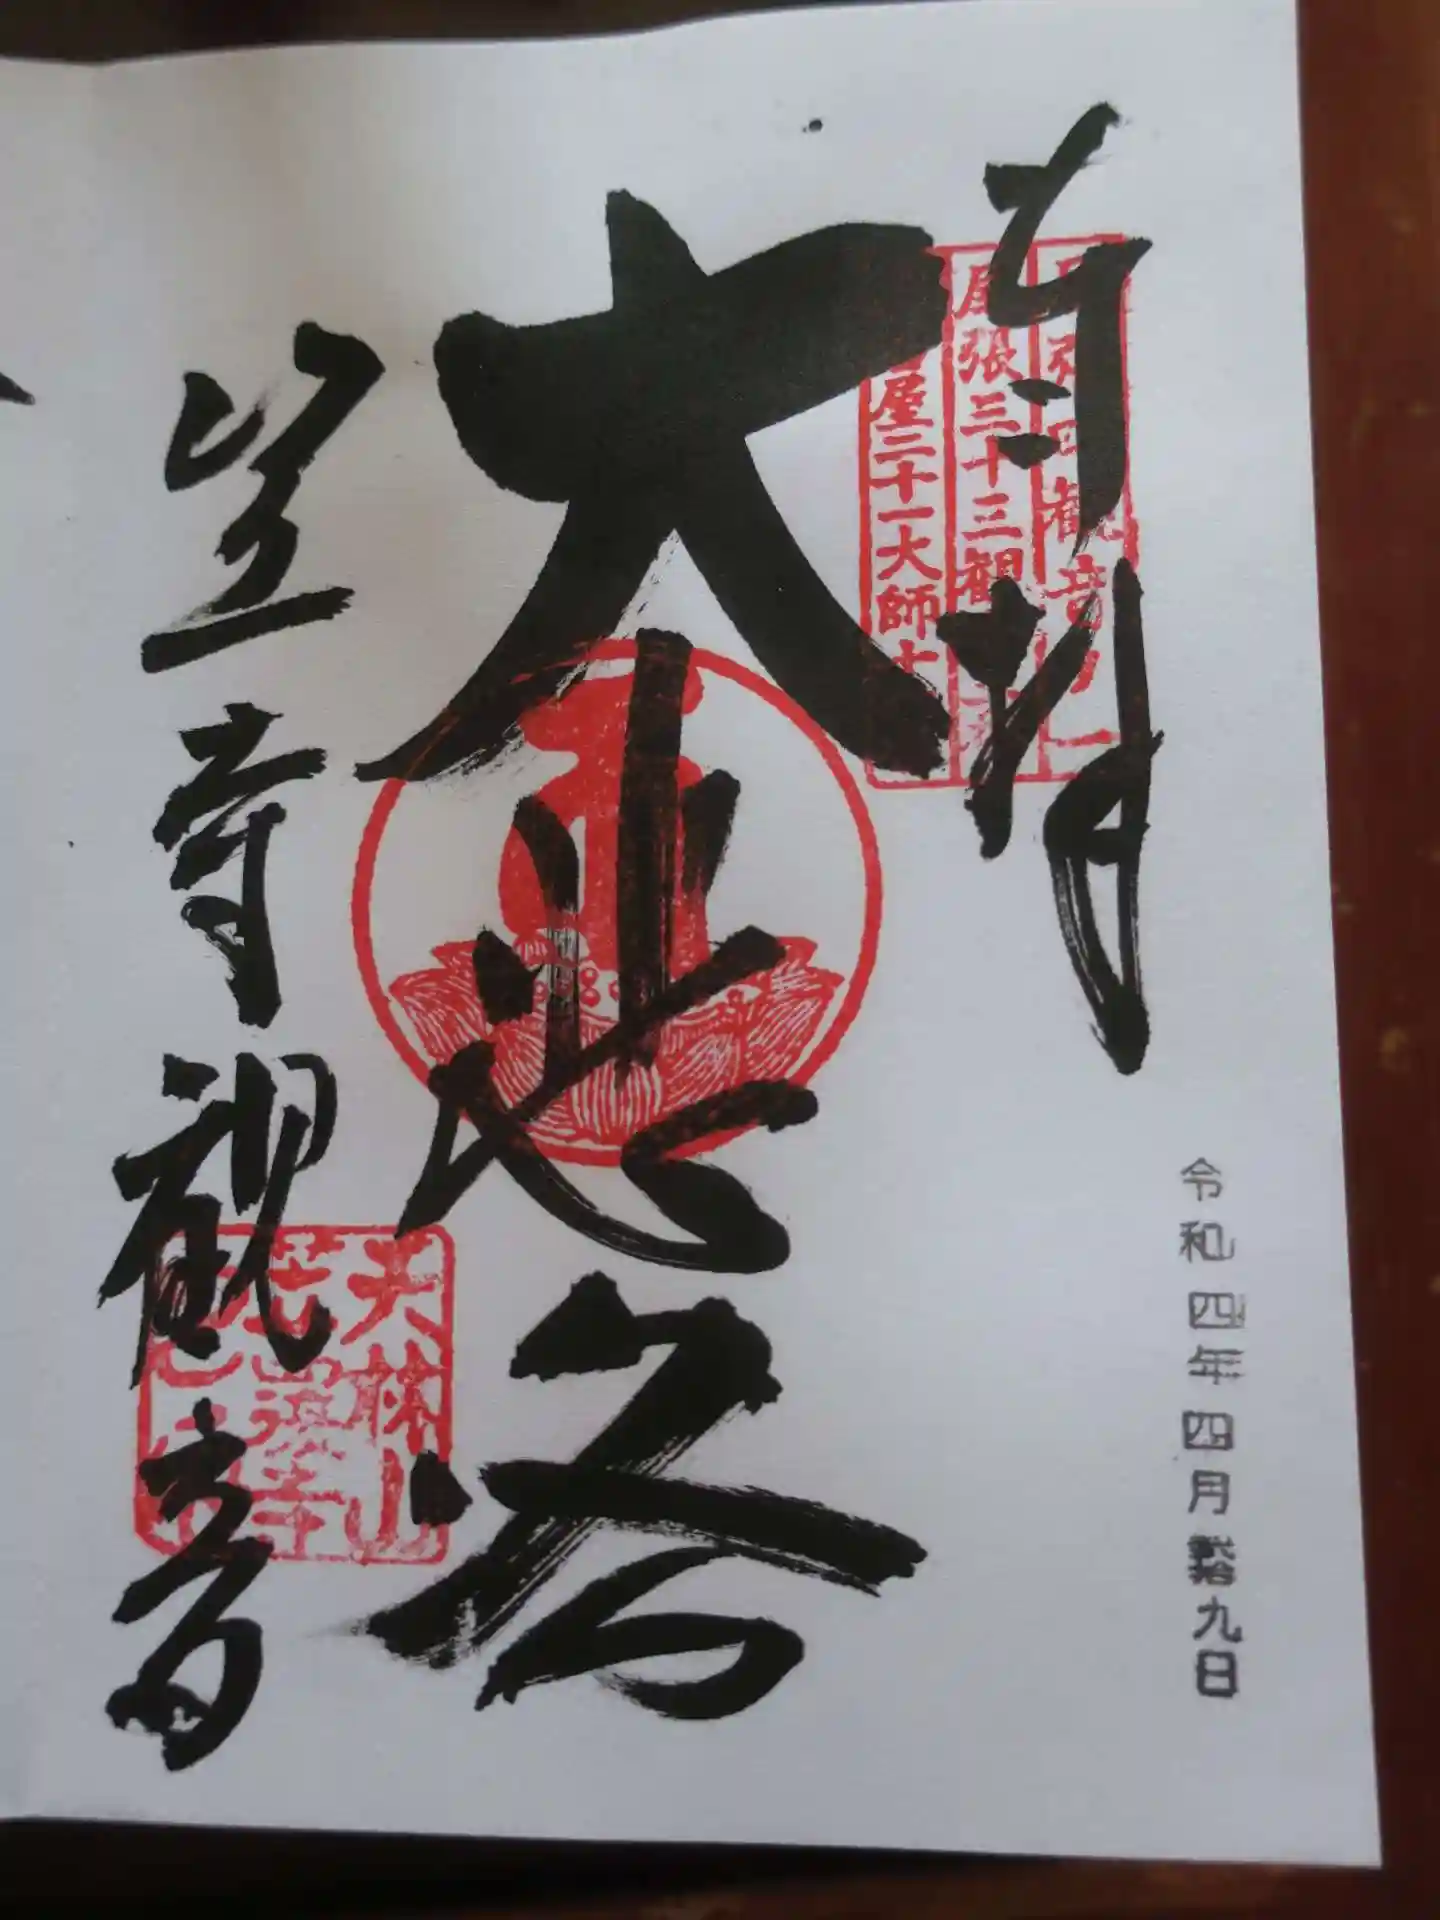 奉拝
四観音の一
尾張三十三観
屋二十一大師
大悲閣
笠寺観音
天林山
笠覆寺
令和四年四月 九日